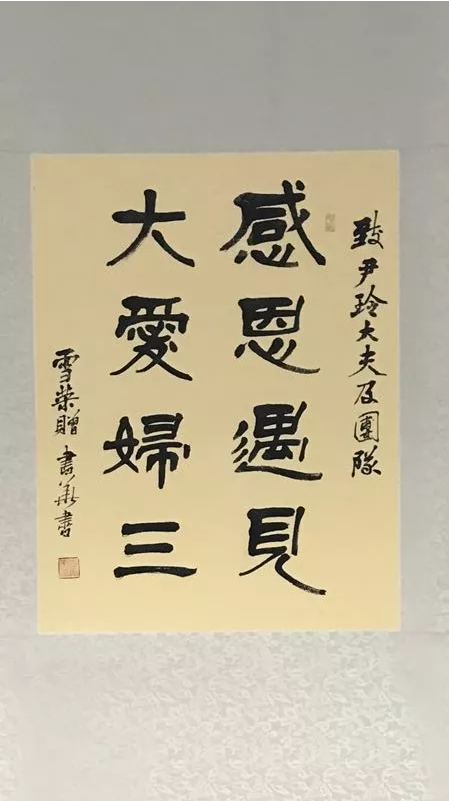 致尹玲大夫及團隊
感恩遇見
大愛婦三
雪榮贈 書華書